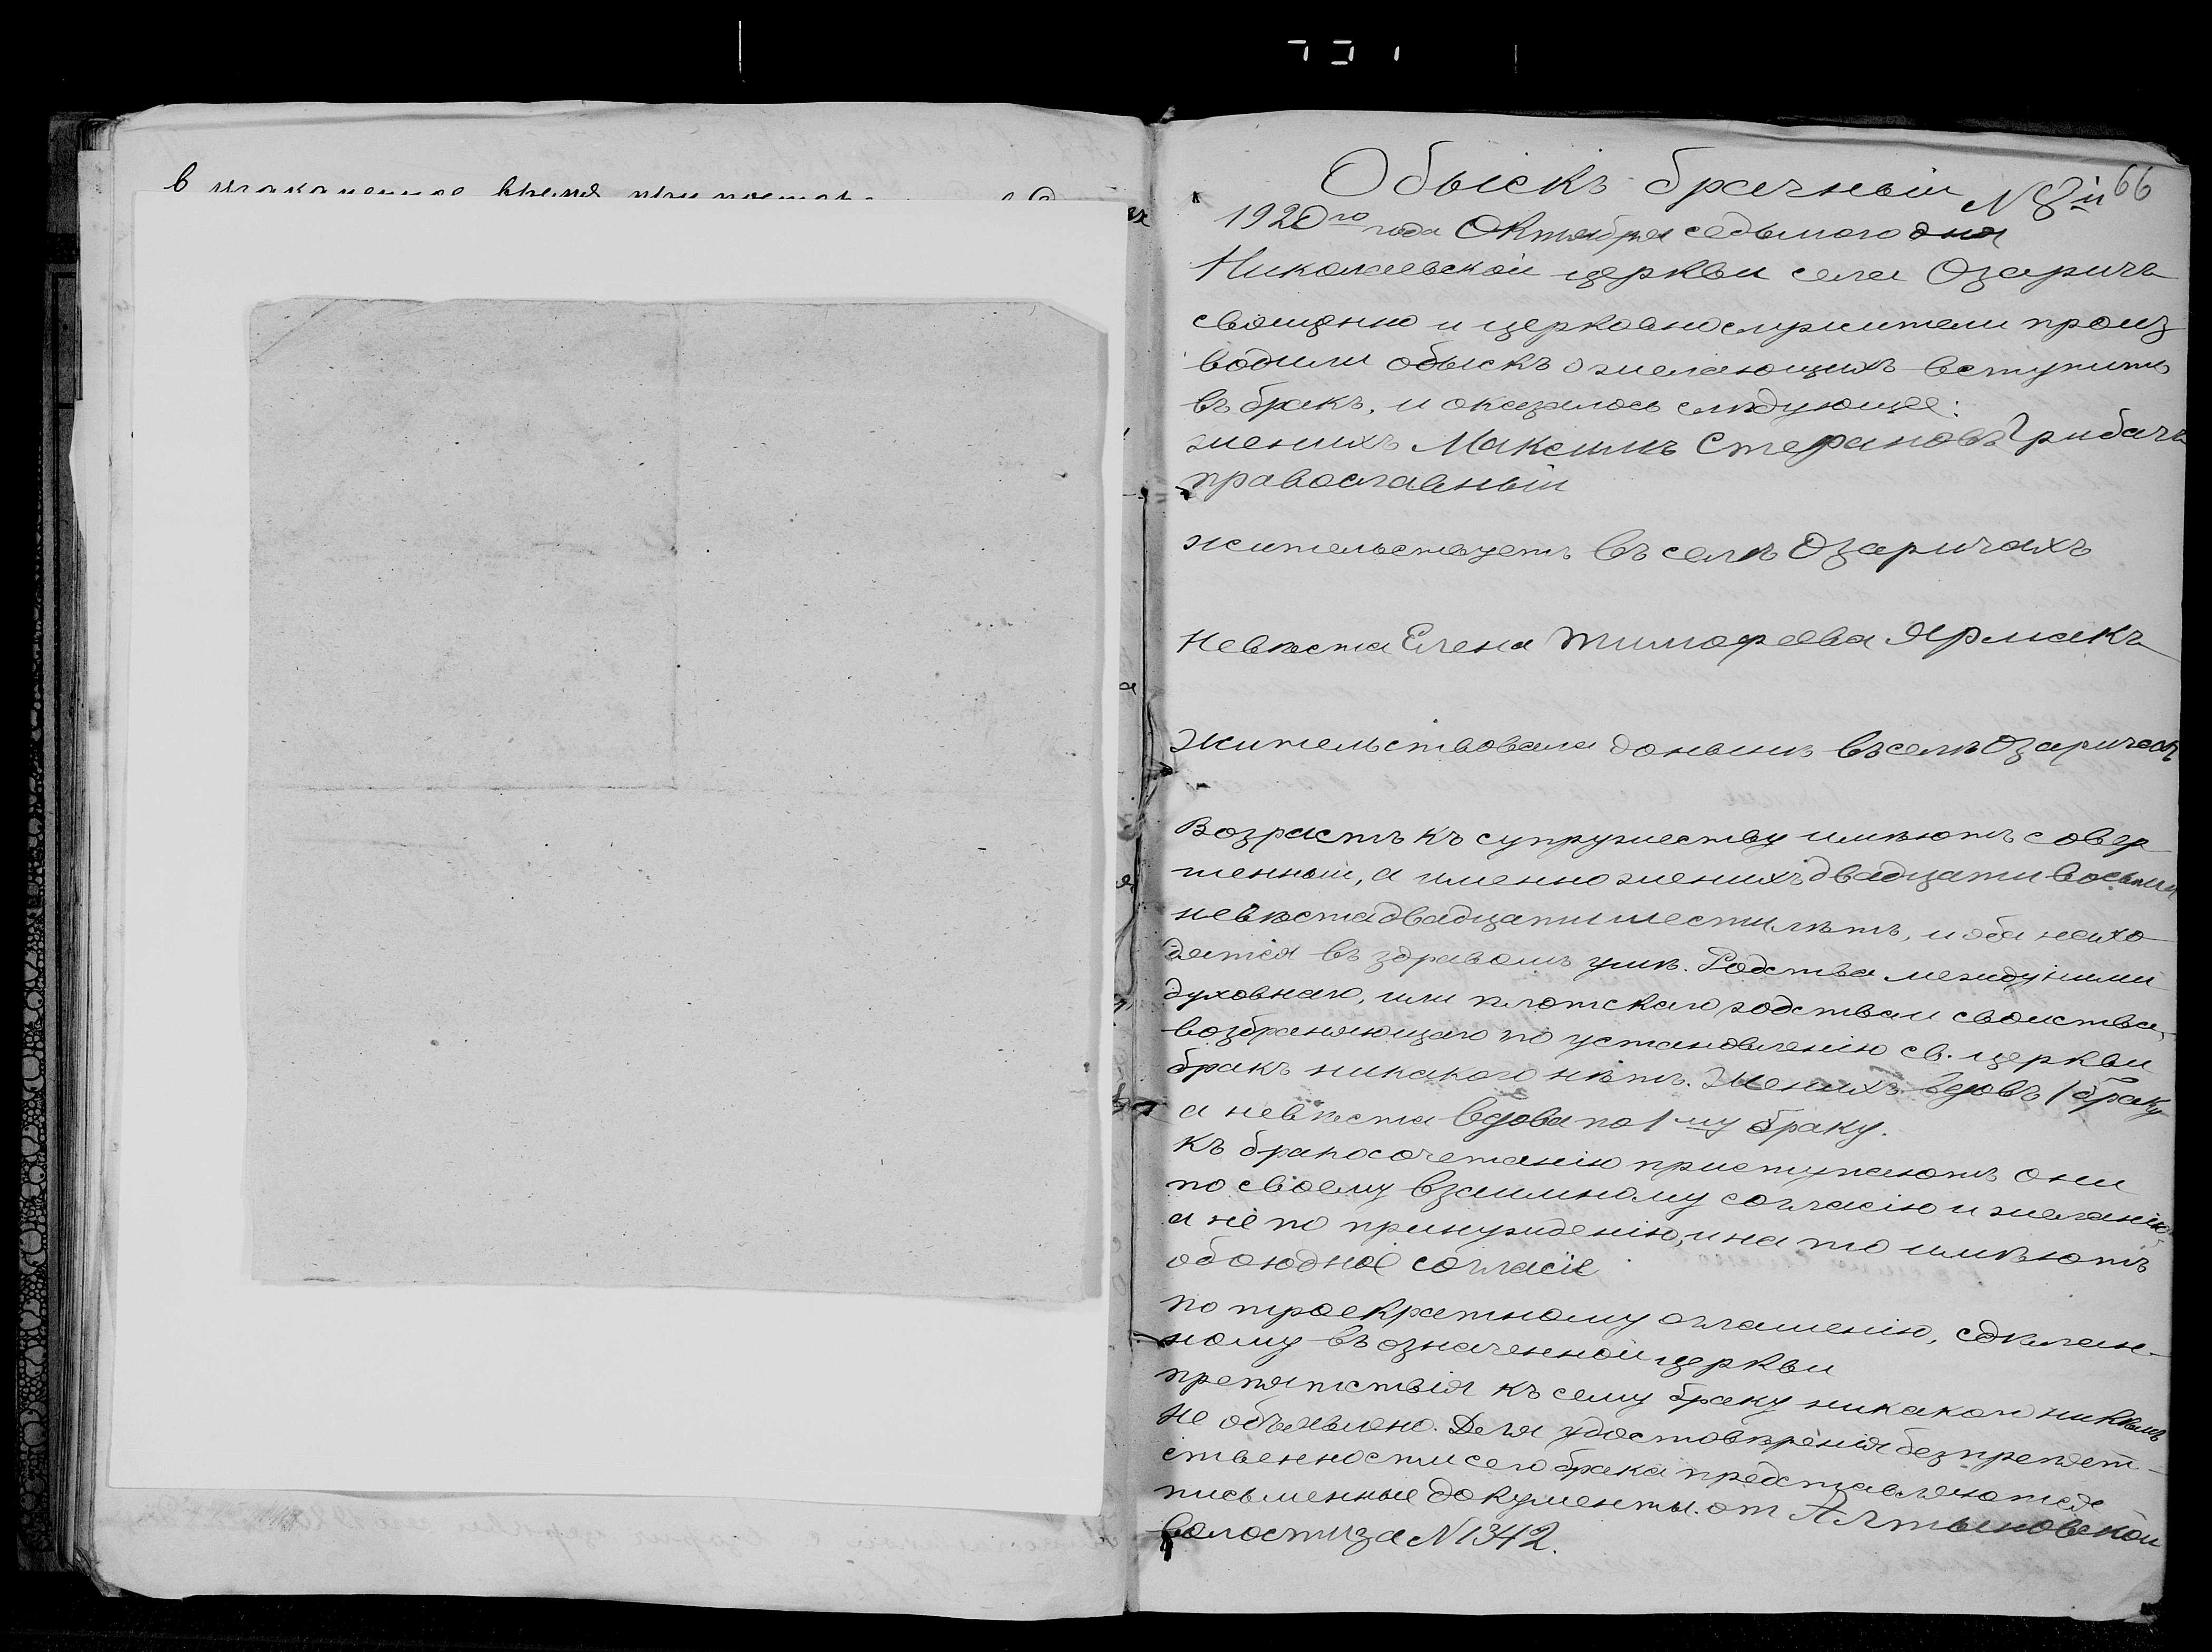 в указаненное время при
Обыскъ брачный N 8й 66
1920го года Октября седьмого дня
Николаевской церкви села Озаричъ
священно и церковнослужители произ
водили обыскъ о желающихъ вступить
въ бракъ, и оказалось слѣдующее:
женихъ Максимъ Стефановъ Грибачъ
православный
жительствуетъ въ селѣ Озаричахъ
Невѣста Елена Тимофеева Ярмакъ
Жительствовала донынѣ въ селѣ Озаричахъ
Возрастъ къ супружеству имѣютъ совер
шенный, а именно женихъ двадцати восьми
невѣста двадцати шести лѣтъ, и оба нахо
дятся въ здравомъ умѣ. Родства между ними
духовнаго, или плотскаго родства и свойства,
возбраняющаго по установленію св. церкви
бракъ никакого нѣтъ. Женихъ вдовъ 1 браку
а невѣста вдова по 1му браку.
Къ бракосочетанію приступаютъ они
по своему взаимному согласію и желанію
а не по принужденію, и на то имѣютъ
обоюдное согласіе
По троекратному оглашенію, сдѣлан-
ному въ означенной церкви
препятствія къ сему браку никакого никѣмъ
не объявлено. Для удостовѣренія безпрепят-
ственности сего брака представляются
письменные документы. от Алтыновской
волости за N 1342.